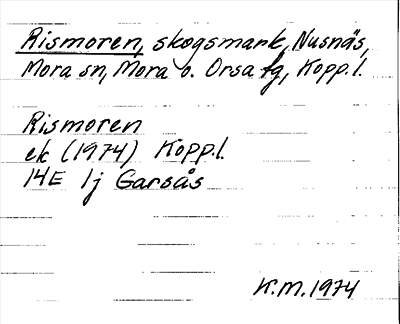 Rismoren, skogsmark, Nusnäs,
Mora sn, Mora o. Orsa tg, Kopp.l.
Rismoren
ek (1974) Kopp.l.
14E 1j Garsås
K.M.1974